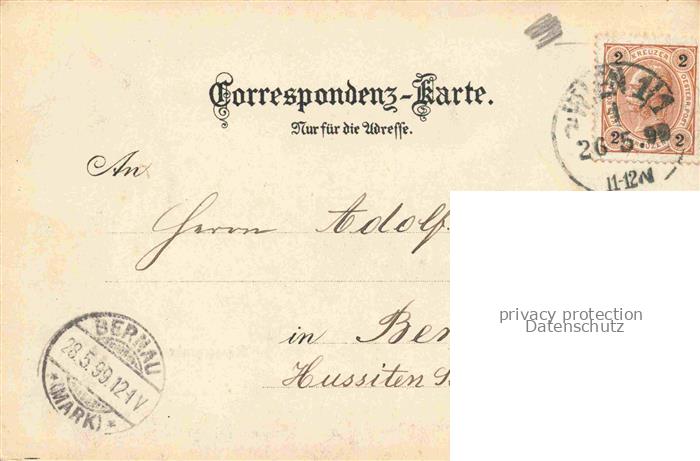 Correspondenz-Karte.
Nur für die Adresse.
2 KREUZER 2
2 2
WIEN 1/1
26.5.99
11-12N
An
Herrn Adolf
in Ber
Hussiten S
BERNAU
28.5.99.12-1V
* (MARK) *
privacy protection
Datenschutz